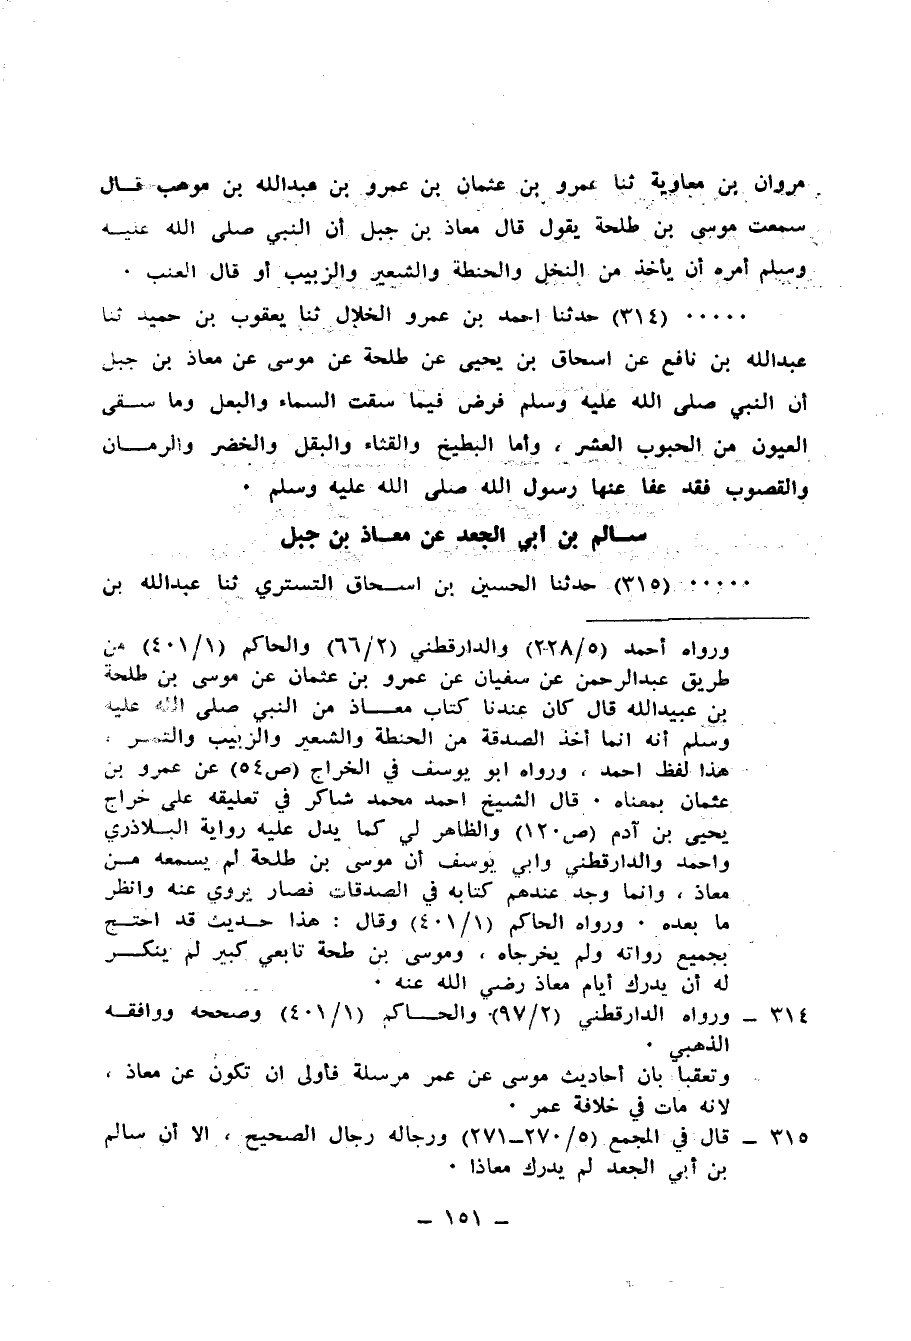 مروان بن معاوية ثنا عمرو بن عثمان بن عمرو بن عبدالله بن موهب قــال
سمعت موسى بن طلحة يقول قال معاذ بن جبل أن النبي صلى الله عليــه
وسلم أمره أن يأخذ من النخل والحنطة والشعير والزبيب أو قال العنب ٠
٠٠٠٠٠ (٣١٤) حدثنا احمد بن عمرو الخلال ثنا يعقوب بن حميد ثنا
عبدالله بن نافع عن اسحاق بن يحيى عن طلحة عن موسى عن معاذ بن جبل
أن النبي صلى الله عليه وسلم فرض فيما سقت السماء والبعل وما ســقى
العيون من الحبوب العشر ، وأما البطيخ والقثاء والبقل والخضر والرمــان
والقصوب فقد عفا عنها رسول الله صلى الله عليه وسلم ٠
ســالم بن ابي الجعد عن معــاذ بن جبل
٠٠٠٠٠ (٣١٥) حدثنا الحسين بن اســحاق التستري ثنا عبدالله بن
ورواه أحمد (٢٢٨/٥) والدارقطني (٦٦/٢) والحاكم (٤٠١/١) من
طريق عبدالرحمن عن سفيان عن عمرو بن عثمان عن موسى بن طلحة
بن عبيدالله قال كان عندنا كتاب معــــاذ من النبي صلى الله عليه
وسلم أنه انما أخذ الصدقة من الحنطة والشعير والزبيب والتمــر ،
هذا لفظ احمد ، ورواه ابو يوسف في الخراج (ص٥٤) عن عمرو بن
عثمان بمعناه ٠ قال الشيخ احمد محمد شاكر في تعليقه على خراج
يحيى بن آدم (ص١٢٠) والظاهر لي كما يدل عليه رواية البــلاذري
واحمد والدارقطني وابي يوسف أن موسى بن طلحة لم يسمعه مــن
معاذ ، وانما وجد عندهم كتابه في الصدقات فصار يروي عنه وانظر
ما بعده ٠ ورواه الحاكم (٤٠١/١) وقال : هذا حــديث قد احتــج
بجميع رواته ولم يخرجاه ، وموسى بن طحة تابعي كبير لم ينكــر
له أن يدرك أيام معاذ رضي الله عنه ٠
٣١٤ ــ ورواه الدارقطني (٩٧/٢) والحــــاكم (٤٠١/١) وصححه ووافقــه
الذهبي ٠
وتعقبا بان أحاديث موسى عن عمر مرسلة فأولى ان تكون عن معاذ ،
لانه مات في خلافة عمر ٠
٣١٥ ــ قال في المجمع (٥/ ٢٧٠ــ٢٧١) ورجاله رجال الصحيح ، الا أن سالم
بن أبي الجعد لم يدرك معاذا ٠
ــ ١٥١ ــ